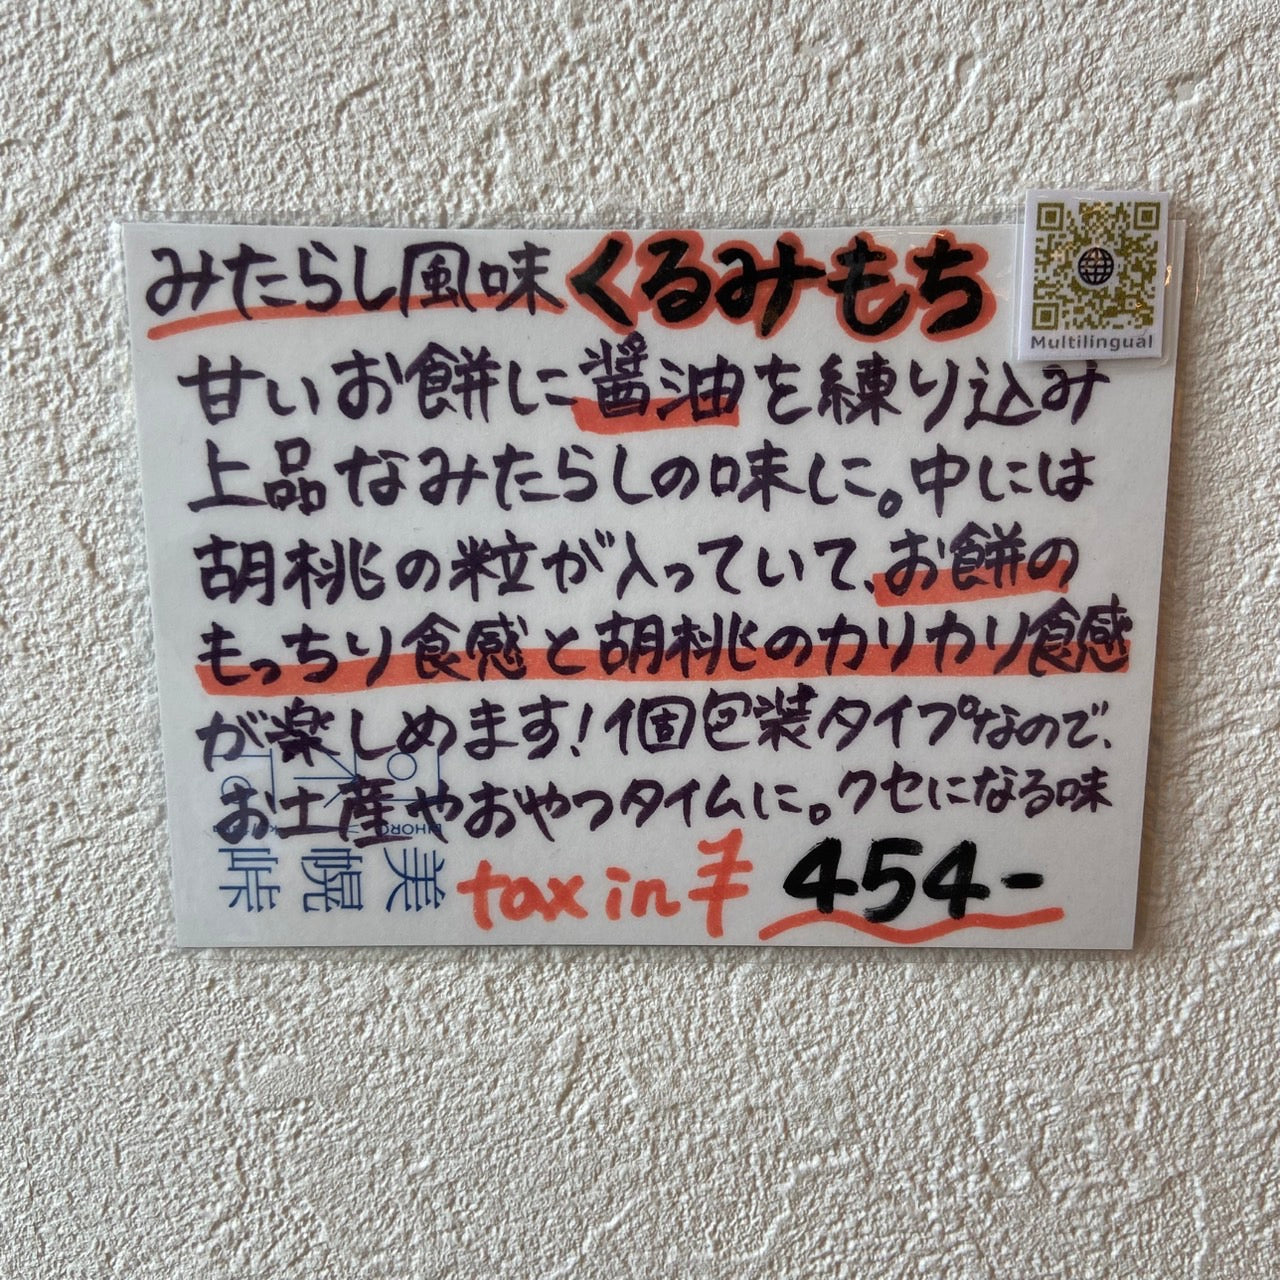 みたらし風味 くるみもち
Multilingual
甘いお餅に醤油を練り込み
上品なみたらしの味に。中には
胡桃の粒が入っていて、お餅の
もっちり食感と胡桃のカリカリ食感
が楽しめます!個包装タイプなので、
お土産やおやつタイムに。クセになる味
美幌峠
tax in ¥ 454-